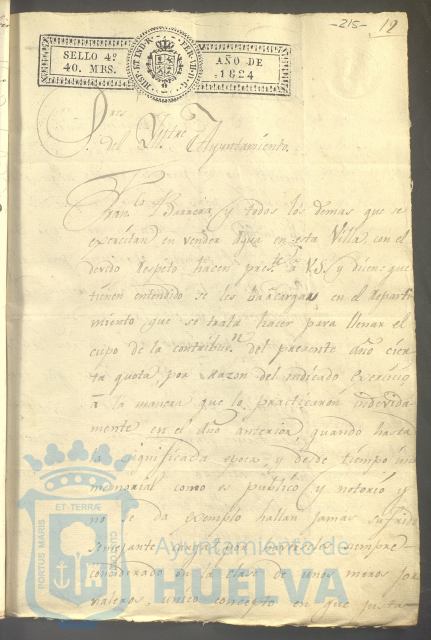 -215- 19
SELLO 4º
40. MRS.
HISP. ET IND. R. FER. VII. D. G.
AÑO DE
1824
S.res
del Y.ltre Ayuntamiento.
Fran.co Barrera y todos los demas que se
exercitan en vender agua en esta Villa con el
devido respeto hacen pres.te á V.S. y dicen que
tienen entendido se les en el reparti-
miento que se trata hacer para llenar el
cupo de la contribus.n del presente año cier-
ta quota por razon del indicado exercicio
á la manera que lo practicaron indevida-
mente en el año anterior, quando hasta
la significada epoca, y desde tiempo in-
memorial como es publico y notorio y
no se da exemplo hallan jamas sufrido
semejante carga por haverse siempre
considerado en la clase de unos meros jor-
naleros, unico concepto en que justa-
PORTUS MARIS ET TERRÆ CUSTODIA
Ayuntamiento de
HUELVA